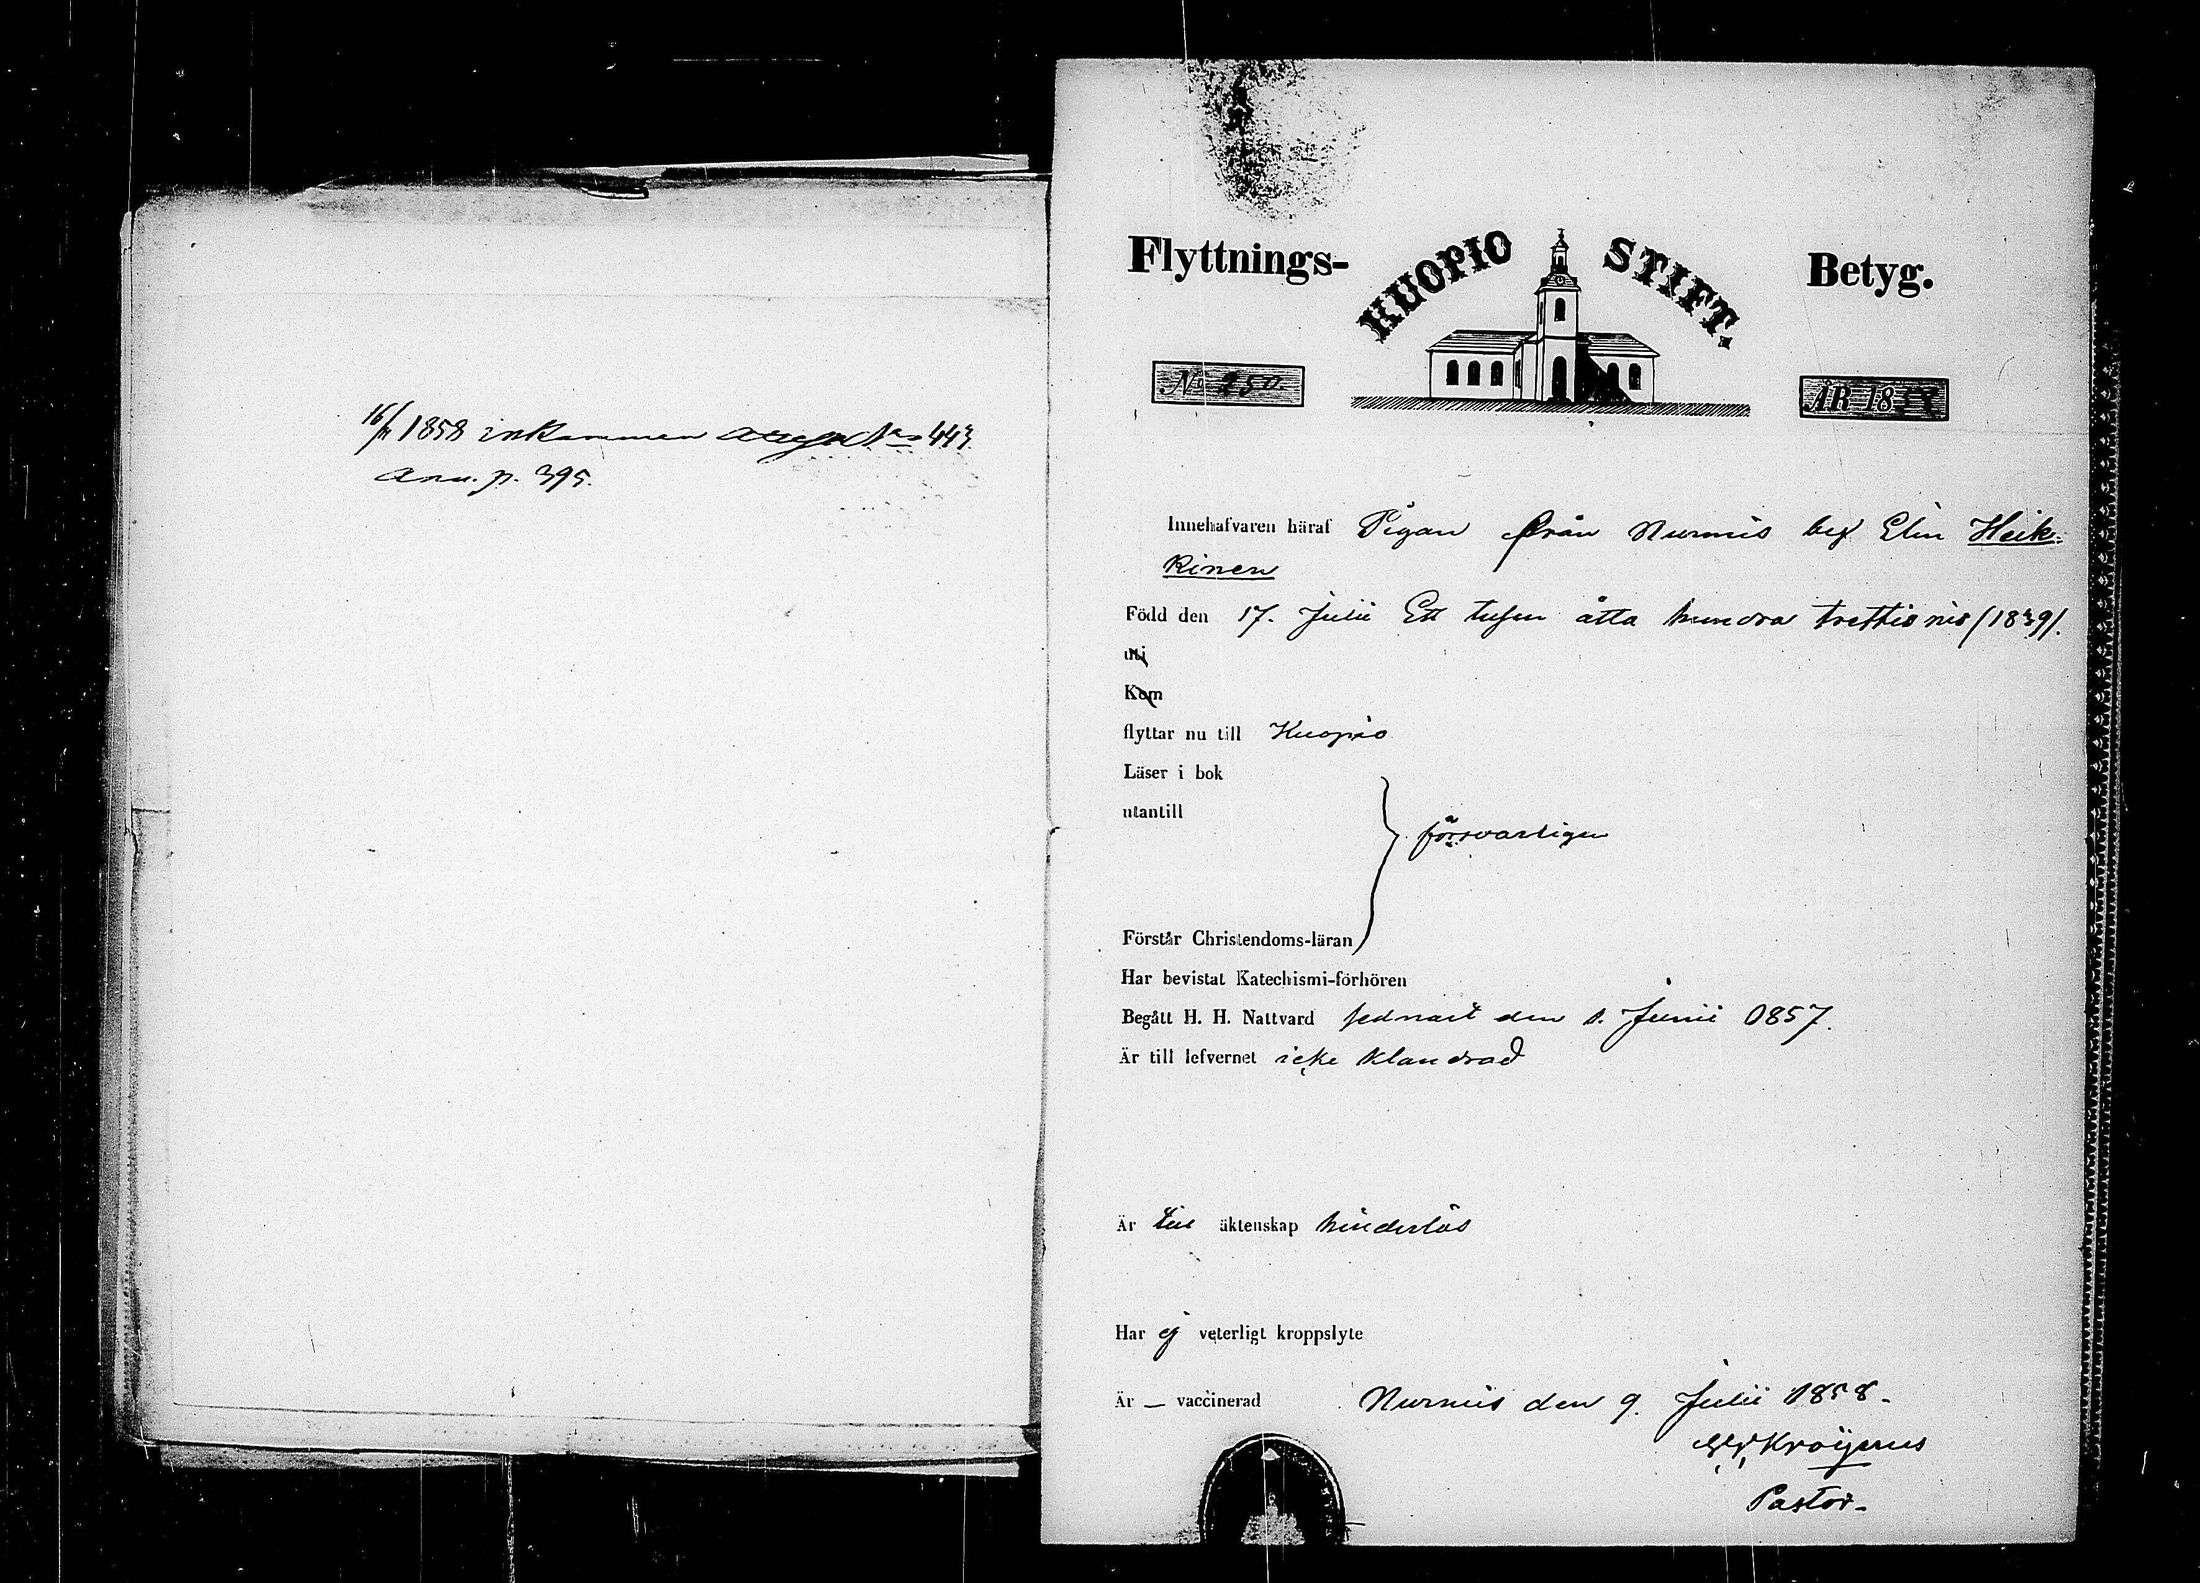 16/11 1858 inkommen No 443
Ann. p. 395.
Flyttnings- KUOPIO STIFT. Betyg.
No 250. ÅR 1858
Innehafvaren häraf Pigan från Nurmis by Elin Heik-
kinen
Född den 17. Julii Ett tusen åtta hundra trettionio (1839).
uti
Kom
flyttar nu till Kuopio
Läser i bok
utantill
försvarligen
Förstår Christendoms-läran
Har bevistat Katechismi-förhören
Begått H. H. Nattvard sednast den 1. Junii 1857.
Är till lefvernet icke klandrad
Är till äktenskap hinderlös
Har ej veterligt kroppslyte
Är — vaccinerad Nurmis den 9. Julii 1858.
Kroijerus
Pastor.